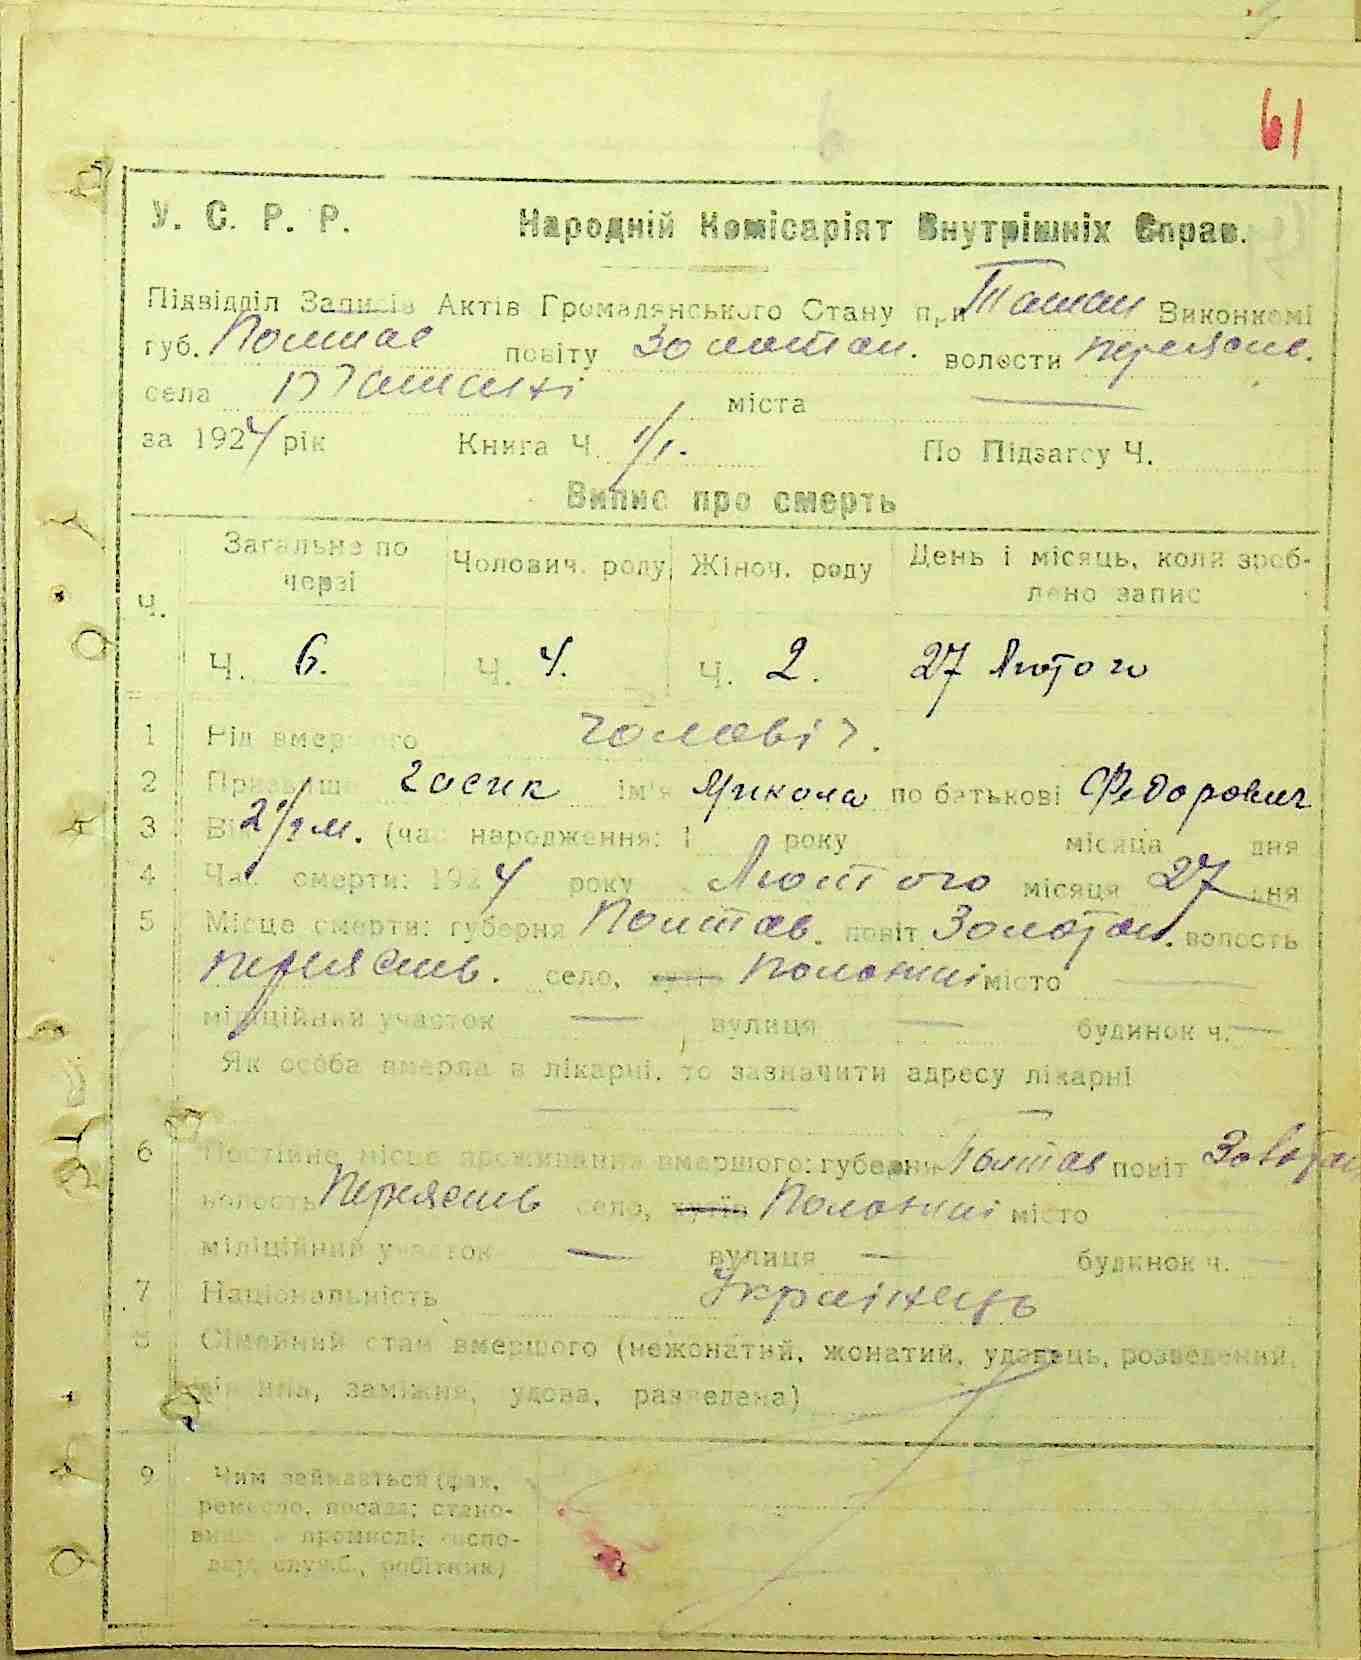 61
У. С. Р. Р. Народній Комісаріят Внутрішніх Справ.
Підвідділ Записів Актів Громадянського Стану при Ташан Виконкомі
губ. Полтав повіту Золотон. волости Переясив.
села Ташані міста —
за 1924 рік Книга Ч. 1/1. По Підзагсу Ч.
Випис про смерть
Ч. Загальне по черзі Чолович. роду Жіноч. роду День і місяць, коли зроблено запис
Ч. 6. Ч. 4. Ч. 2. 27 Лютого
1 Рід вмершого чоловіч.
2 Призвище Носик ім'я Микола по батькові Федорович
3 Вік 2 1/2 м. (час народження: 1 року місяца дня
4 Час смерти: 1924 року Лютого місяця 27 дня
5 Місце смерти: губерня Полтав. повіт Золотон. волость
Переясив. село, Положаі місто —
міліційний участок — вулиця — будинок ч. —
Як особа вмерла в лікарні, то зазначити адресу лікарні
—
6 Постійне місце проживання вмершого: губерни Полтав повіт Золотон
волость Переясив село, хутір Положаі місто
міліційний участок — вулиця — будинок ч. —
7 Національність Українець
8 Сімейний стан вмершого (нежонатий, жонатий, удовець, розведенний,
дівчина, заміжня, удова, разведена)
9 Чим займається (фах,
ремесло, посада; стано-
вище в промислі: госпо-
дар, служб., робітник)